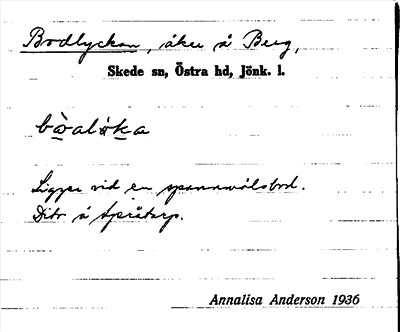 Bodlyckan, åker å Berg,
Skede sn, Östra hd, Jönk. l.
bòalẏka
Ligger vid en spannmålsbod.
Dito å
Annalisa Anderson 1936